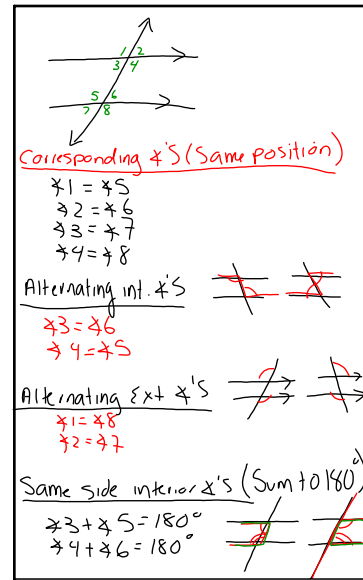 1 2
3 4
5 6
7 8
Corresponding ∡'s (Same position)
∡1 = ∡5
∡2 = ∡6
∡3 = ∡7
∡4 = ∡8
Alternating int. ∡'s
∡3 = ∡6
∡4 = ∡5
Alternating Ext ∡'s
∡1 = ∡8
∡2 = ∡7
Same side interior ∡'s (Sum to 180°)
∡3 + ∡5 = 180°
∡4 + ∡6 = 180°